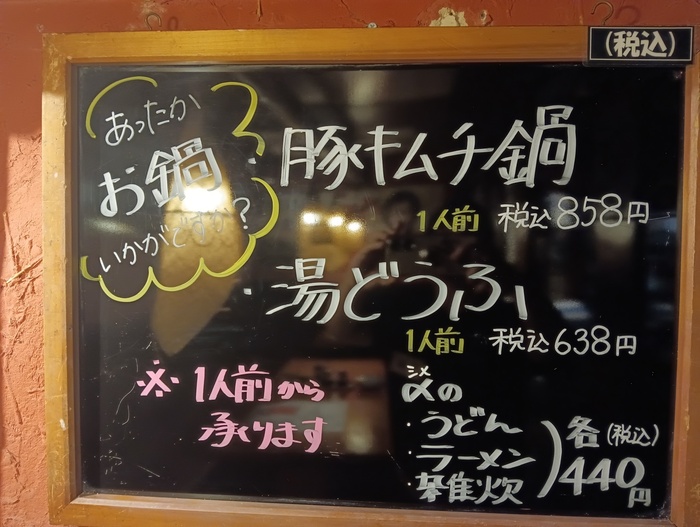 (税込)
あったか
お鍋
いかがですか?
・豚キムチ鍋
1人前 税込858円
・湯どうふ
1人前 税込638円
※1人前から
承ります
シメ
〆の
・うどん
・ラーメン
・雑炊
各(税込)
440円